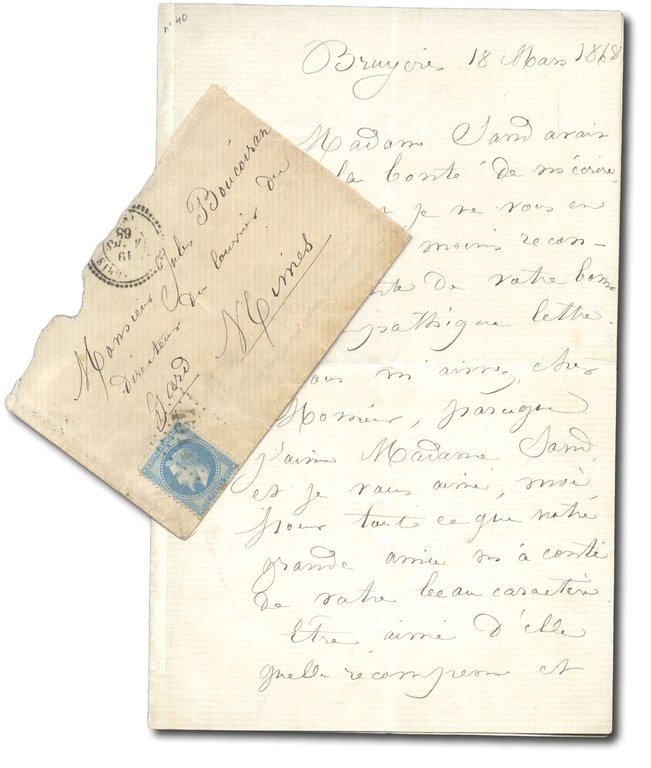 n° 40
Bruyères 18 Mars 1868
Madame Sand avait
la bonté de m'écrire,
je ne vous en
moins recon-
de votre bonne
mpathique lettre.
vous m'aimez, cher
Monsieur, parceque
j'aime Madame Sand,
et je vous aime, moi
pour tout ce que notre
grande amie m'a conté
de votre beau caractère
Etre aimé d'elle
quelle récompense et
Monsieur Jules Boucoiran
directeur du Courrier du
Gard Nimes
19
68